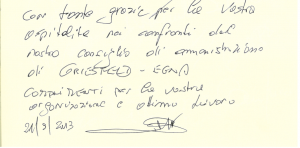 Con tante grazie per la vostra
ospitalità nei confronti del
nostro consiglio di amministrazione
di GRIESFELD - EGNA
Complimenti per la vostra
organizzazione e ottimo lavoro
21/9/2013